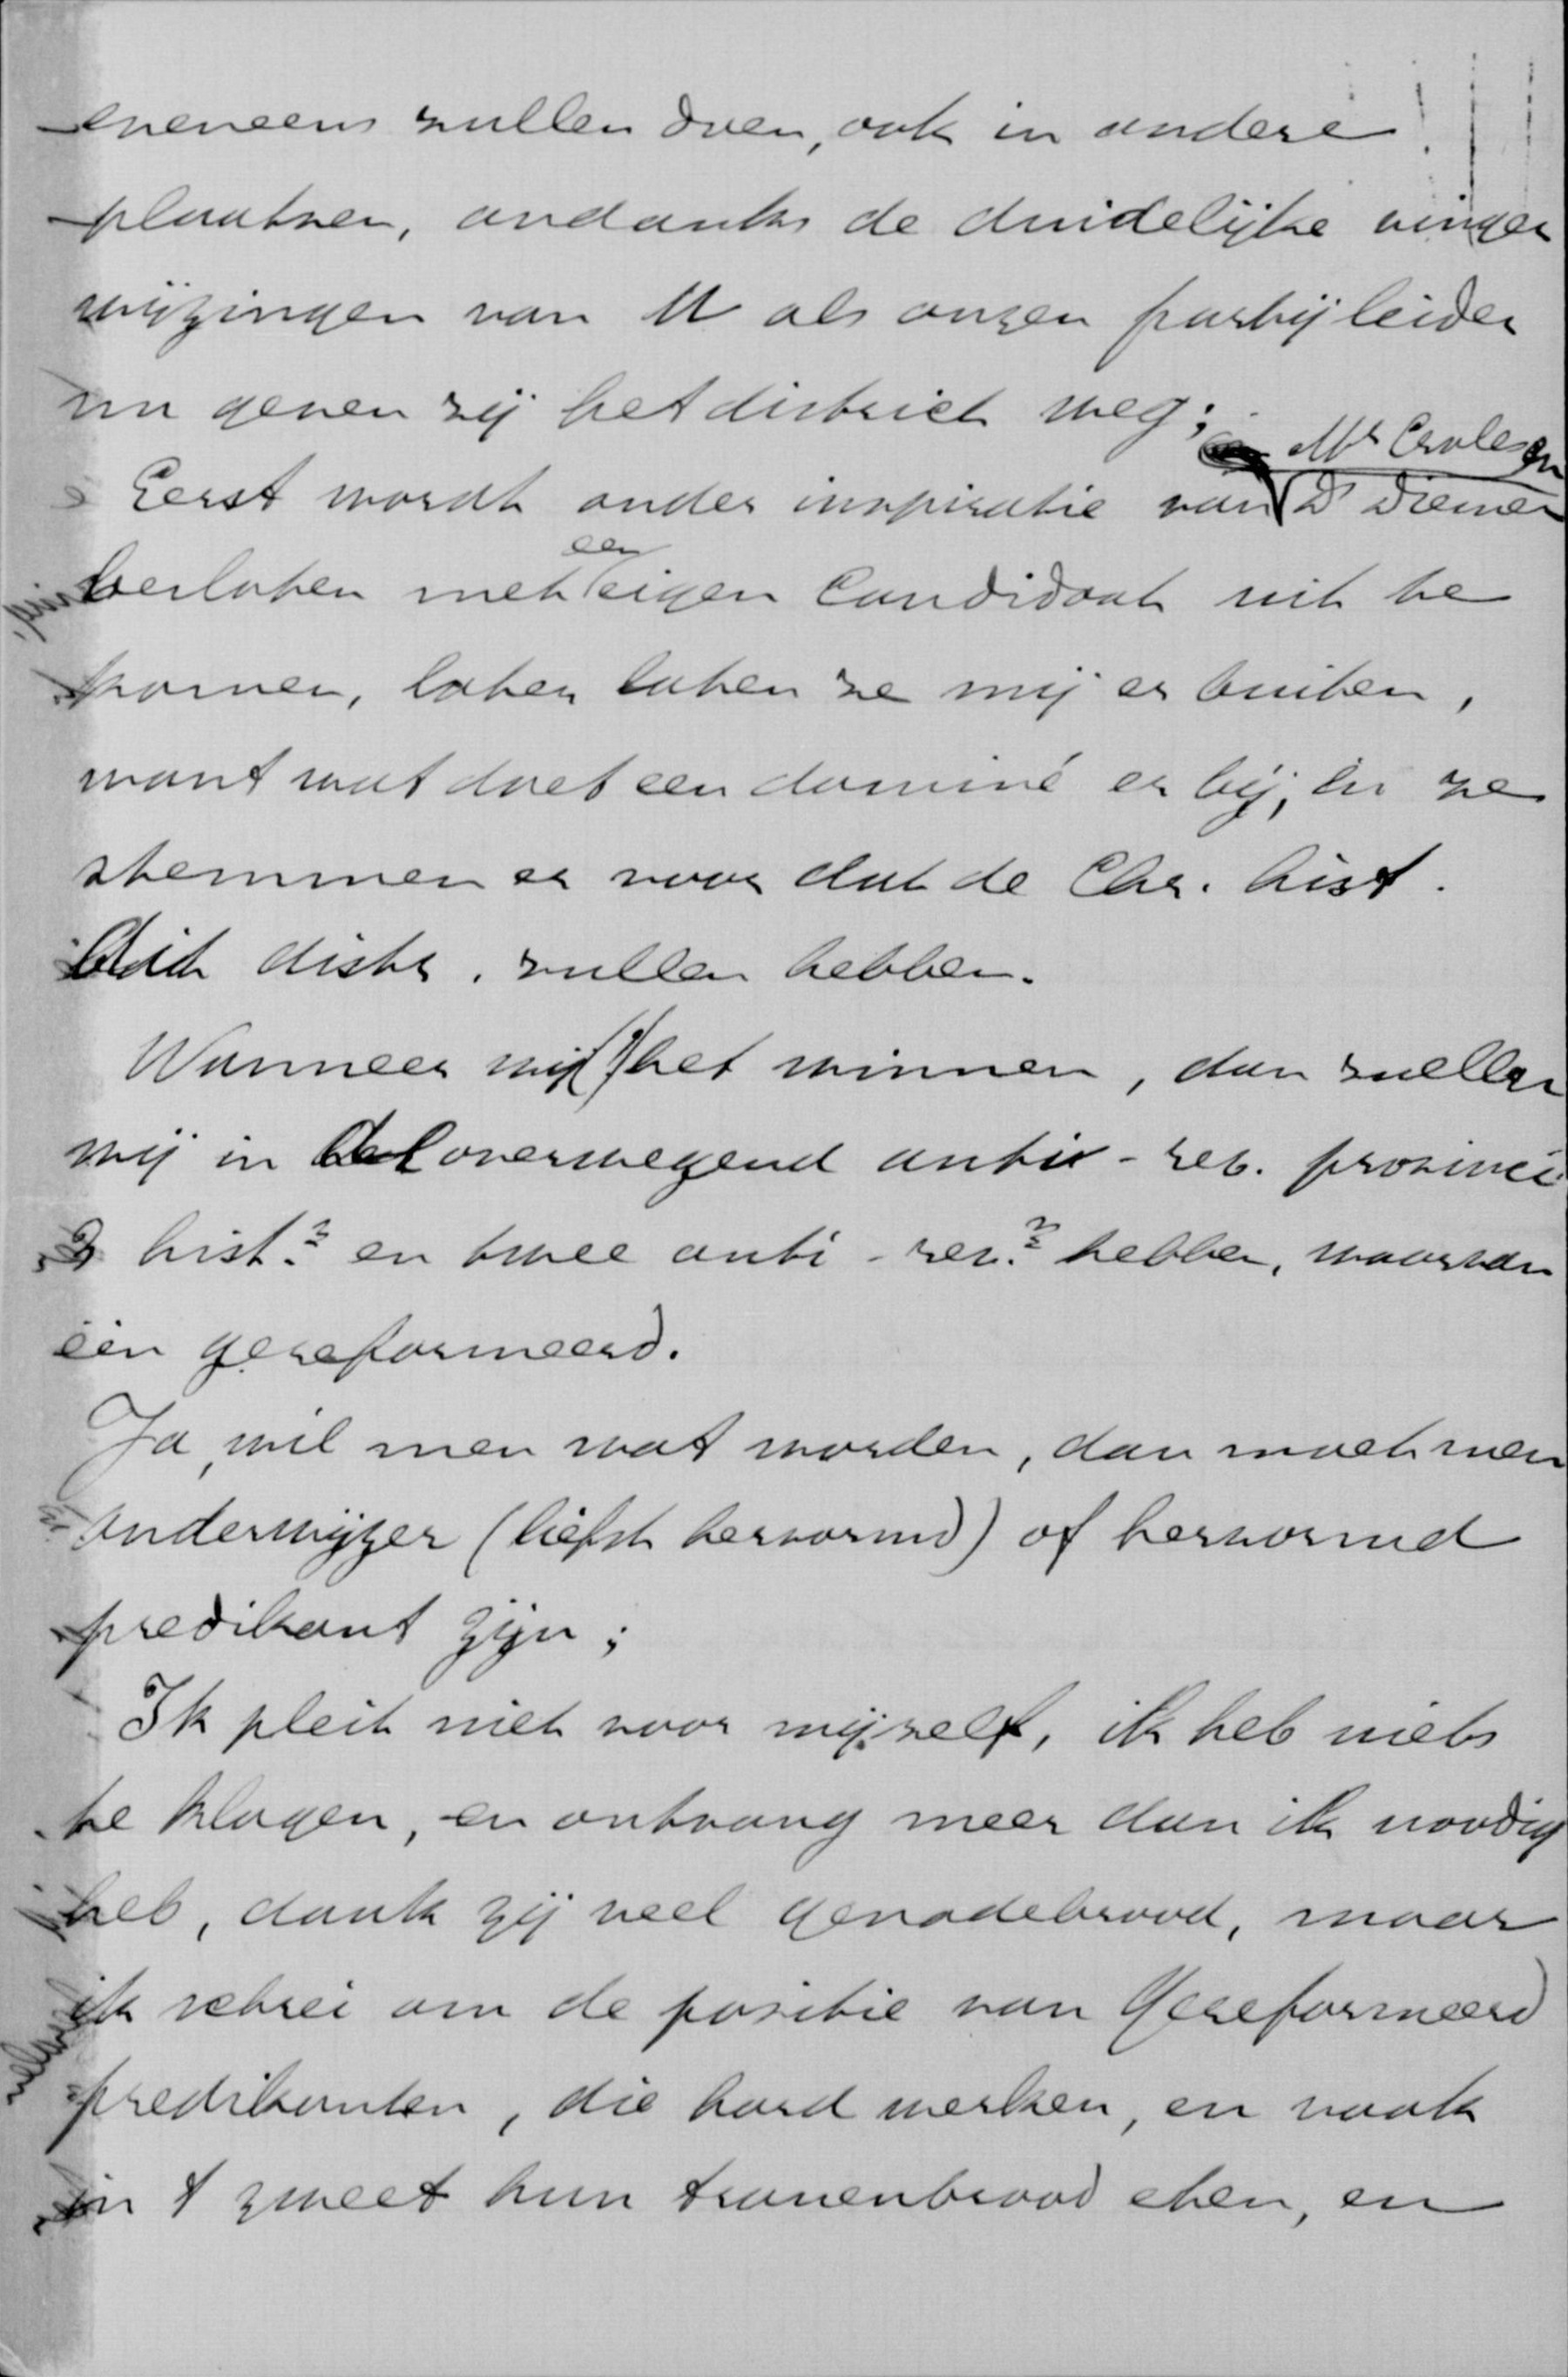 eveneens zullen doen, ook in andere
plaatsen, ondanks de duidelijke vinger
wijzingen van U als onzen partijleider
nu geven zij het district weg;
Mr Croles en
Eerst wordt onder inspiratie van Dr Diemer
een
besloten met eigen Candidaat uit te
komen, laten laten ze mij er buiten,
want wat doet een dominé er bij, en ze
stemmen er voor dat de Chr. hist.
dit distr. zullen hebben.
Wanneer wij het winnen, dan zullen
wij in de overwegend anti-rev. provincie
3 hist.n en twee anti-rev.n hebben, waarvan
één gereformeerd.
Ja, wil men wat worden, dan moet men
onderwijzer (liefst hervormd) of hervormd
predikant zijn;
Ik pleit niet voor mijzelf, ik heb niets
te klagen, en ontvang meer dan ik noodig
heb, dank zij veel genadebrood, maar
ik schrei om de positie van Gereformeerd
predikanten, die hard werken, en vaak
in 't zweet hun tranenbrood eten, en